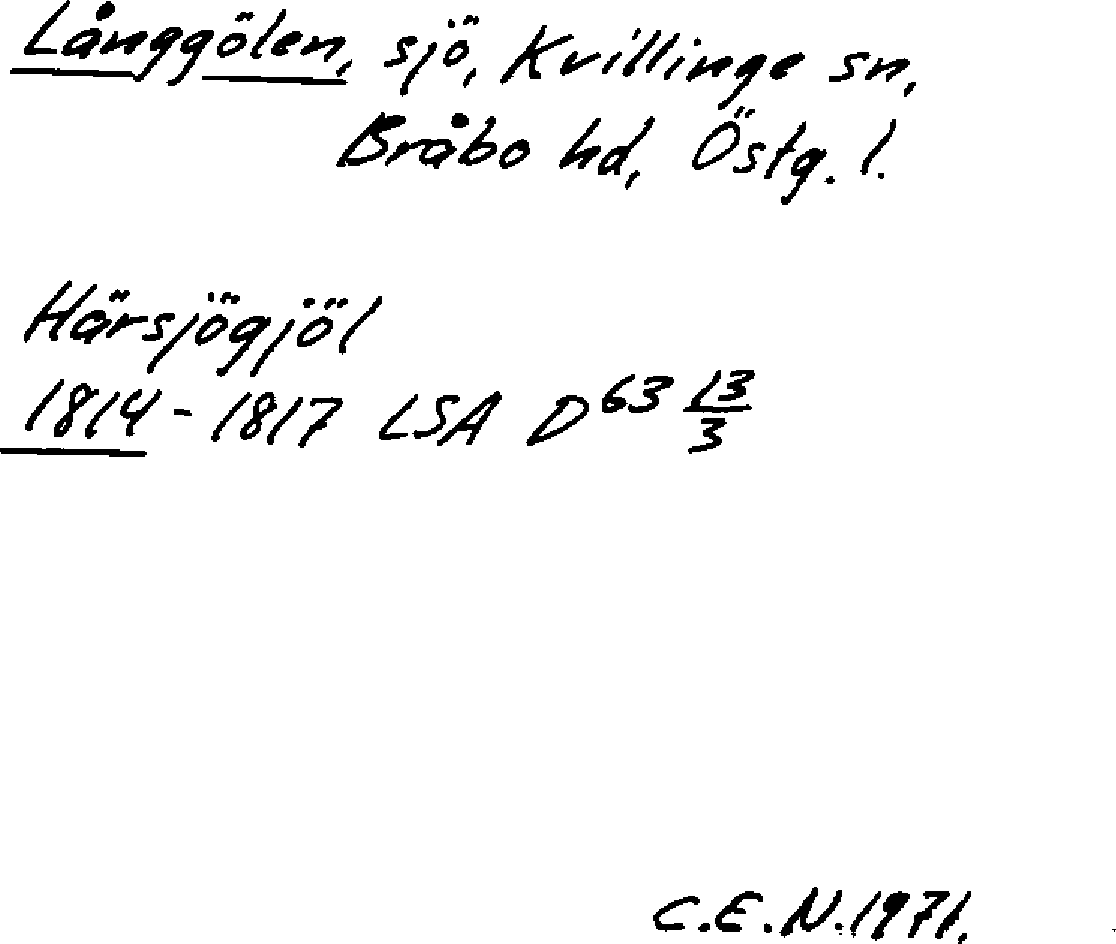 Långgölen, sjö, Kvillinge sn,
Bråbo hd, Östg. l.
Härsjögjöl
1814-1817 LSA D⁶³ 13/3
C.E.N.1971.